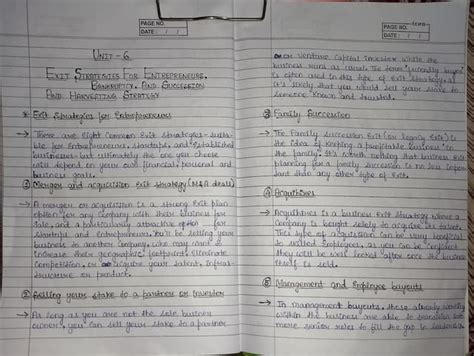 PAGE NO.
DATE: / /
UNIT - 6
EXIT STRATEGIES FOR ENTREPRENEURS,
BANKRUPTCY, AND SUCCESSION
AND HARVESTING STRATEGY
Exit Strategies for Entrepreneurs
→ There are eight Common Exit Strategies suita-
ble for Entrepreneurs, startups, and Established
businesses but ultimately the one you choose
will depend on your own financial, personal and
business goals.
① Merger and acquisition Exit strategy (M&A deals)
→ A merger or acquisition is a strong Exit plan
option for any company with their business for
sale, and a particularly attractive option for
startups and Entrepreneurs. You'll be selling your
business to another company, who may want to
increase their geographic footprint, Eliminate
Competition, or acquire your talent, infras-
tructure or product.
② Selling your stake to a partner or Investor
→ As long as you are not the sole busines
owner, you can sell your stake to a partner
PAGE NO.
DATE: / /
or venture capital investor while the
business runs as usual. The term "friendly buyer"
is often used in this type of exit strategy as
it's likely that you would sell your stake to
someone known and trusted.
③ Family Succession
→ The Family succession Exit (or legacy Exit) is
the idea of keeping a profitable business in
the family. It's worth noting that business exit
planning for a family succession is no less impor-
tant than any other type of exit.
④ Acquihires
→ Acquihires is a business Exit strategy where a
company is bought solely to acquire its talent.
This type of acquisition can be very beneficial
to skilled Employees, as you can be confident
they will be well looked after once the business
itself is sold.
⑤ Management and Employee buyouts
→ In management buyouts, those already working
within the business are able to transition into
more senior roles to fill the gap in leadership